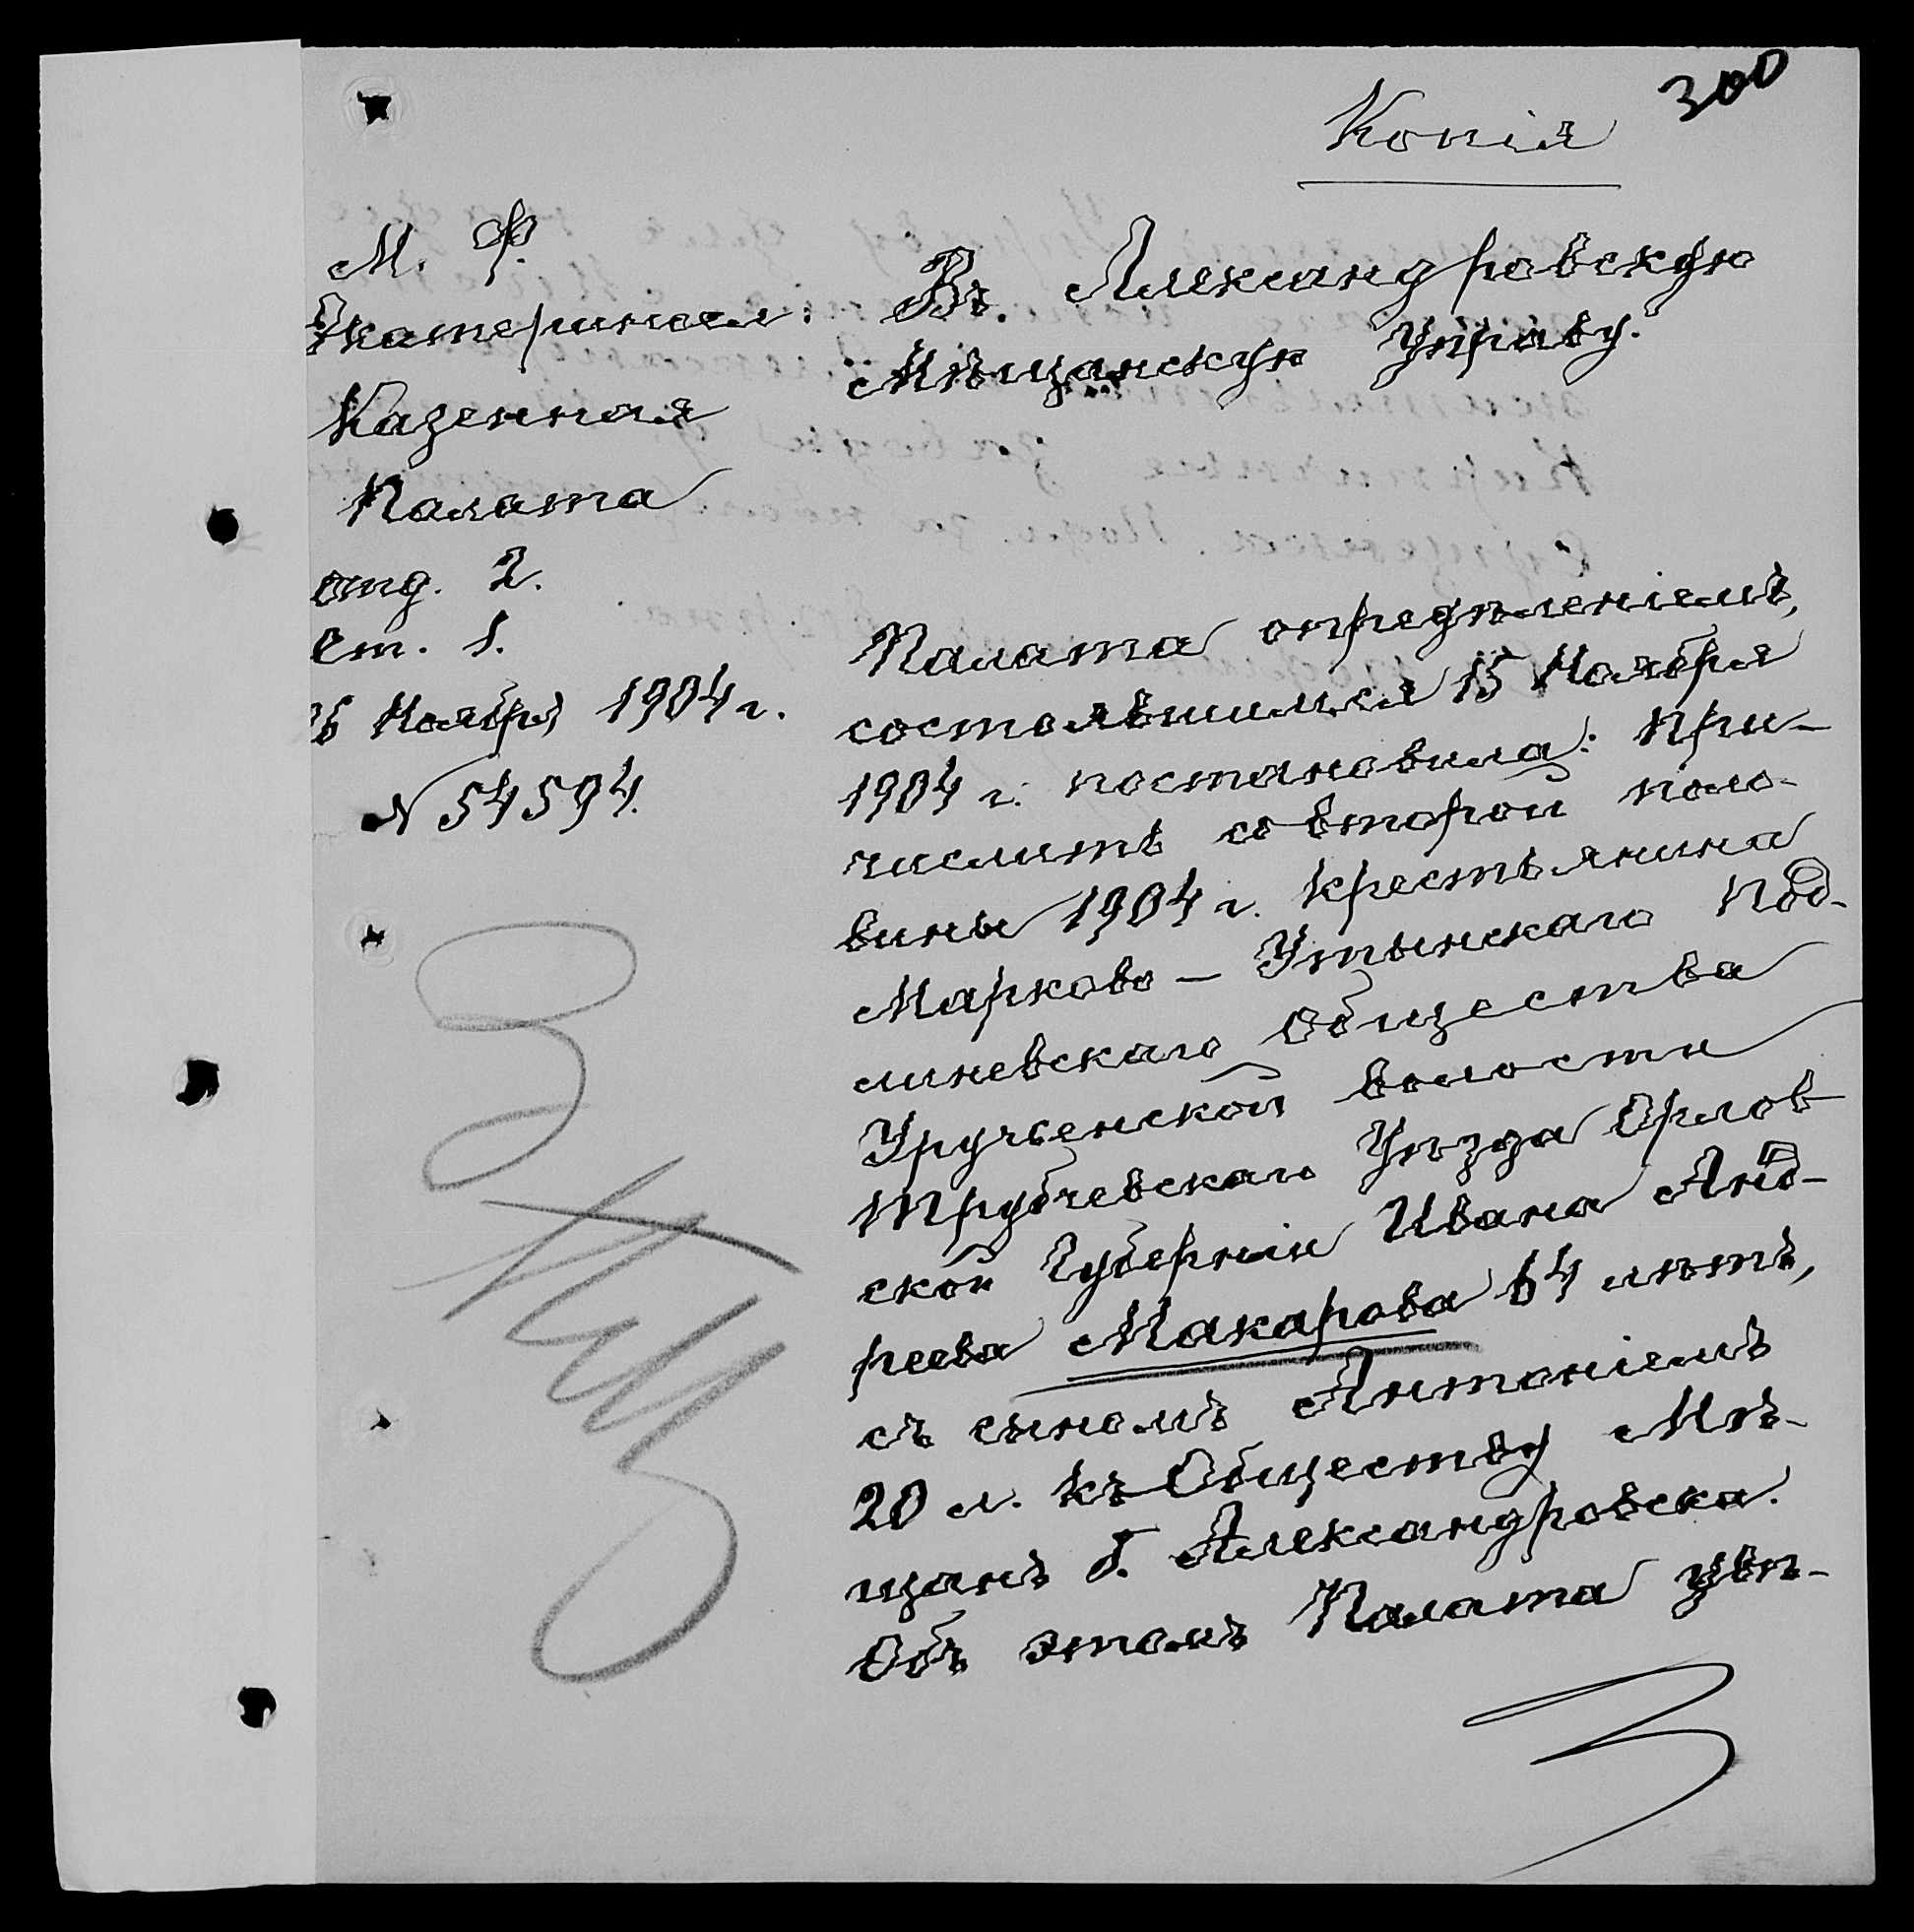 300
Копія
М. Ф.
Екатериносл.
Казенная
Палата
отд. 2.
Ст. 1.
Ноября 1904 г.
№ 54594.
Въ Александровскую
Мѣщанскую Управу.
Палата опредѣленіемъ,
состоявшимся 15 Ноября
1904 г. постановила: при-
числить со второй поло-
вины 1904 г. крестьянина
Марково - Утынскаго Под-
линевскаго Общества
Уручьенской волости
Трубчевскаго Уѣзда Орлов
ской Губерніи Ивана Анд-
реева Макарова 64 лѣтъ,
съ сыномъ Антоніемъ
20 л. къ Обществу Мѣ-
щанъ г. Александровска.
Объ этомъ Палата увѣ-